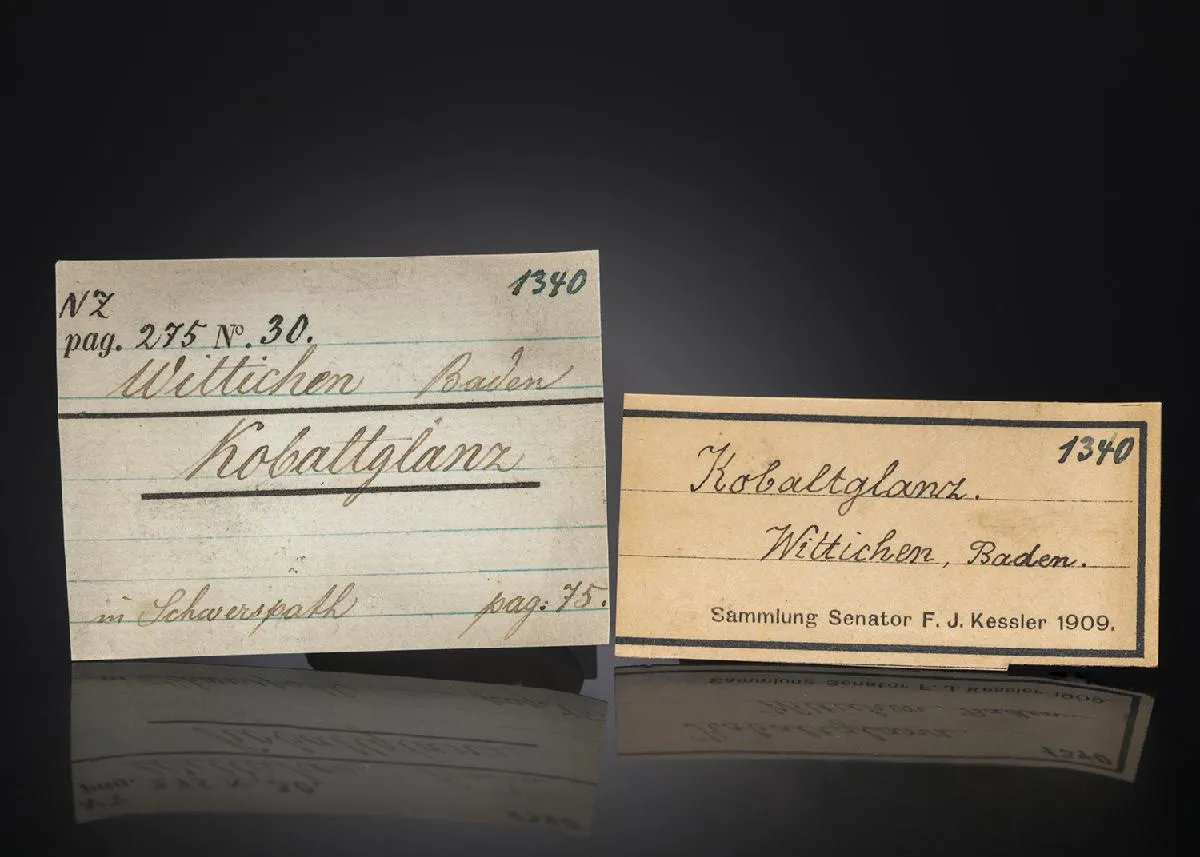 1340
NZ
pag. 275 Nº. 30.
Wittichen Baden
Kobaltglanz
in Schwerspath pag: 75.
1340
Kobaltglanz.
Wittichen, Baden.
Sammlung Senator F. J. Kessler 1909.